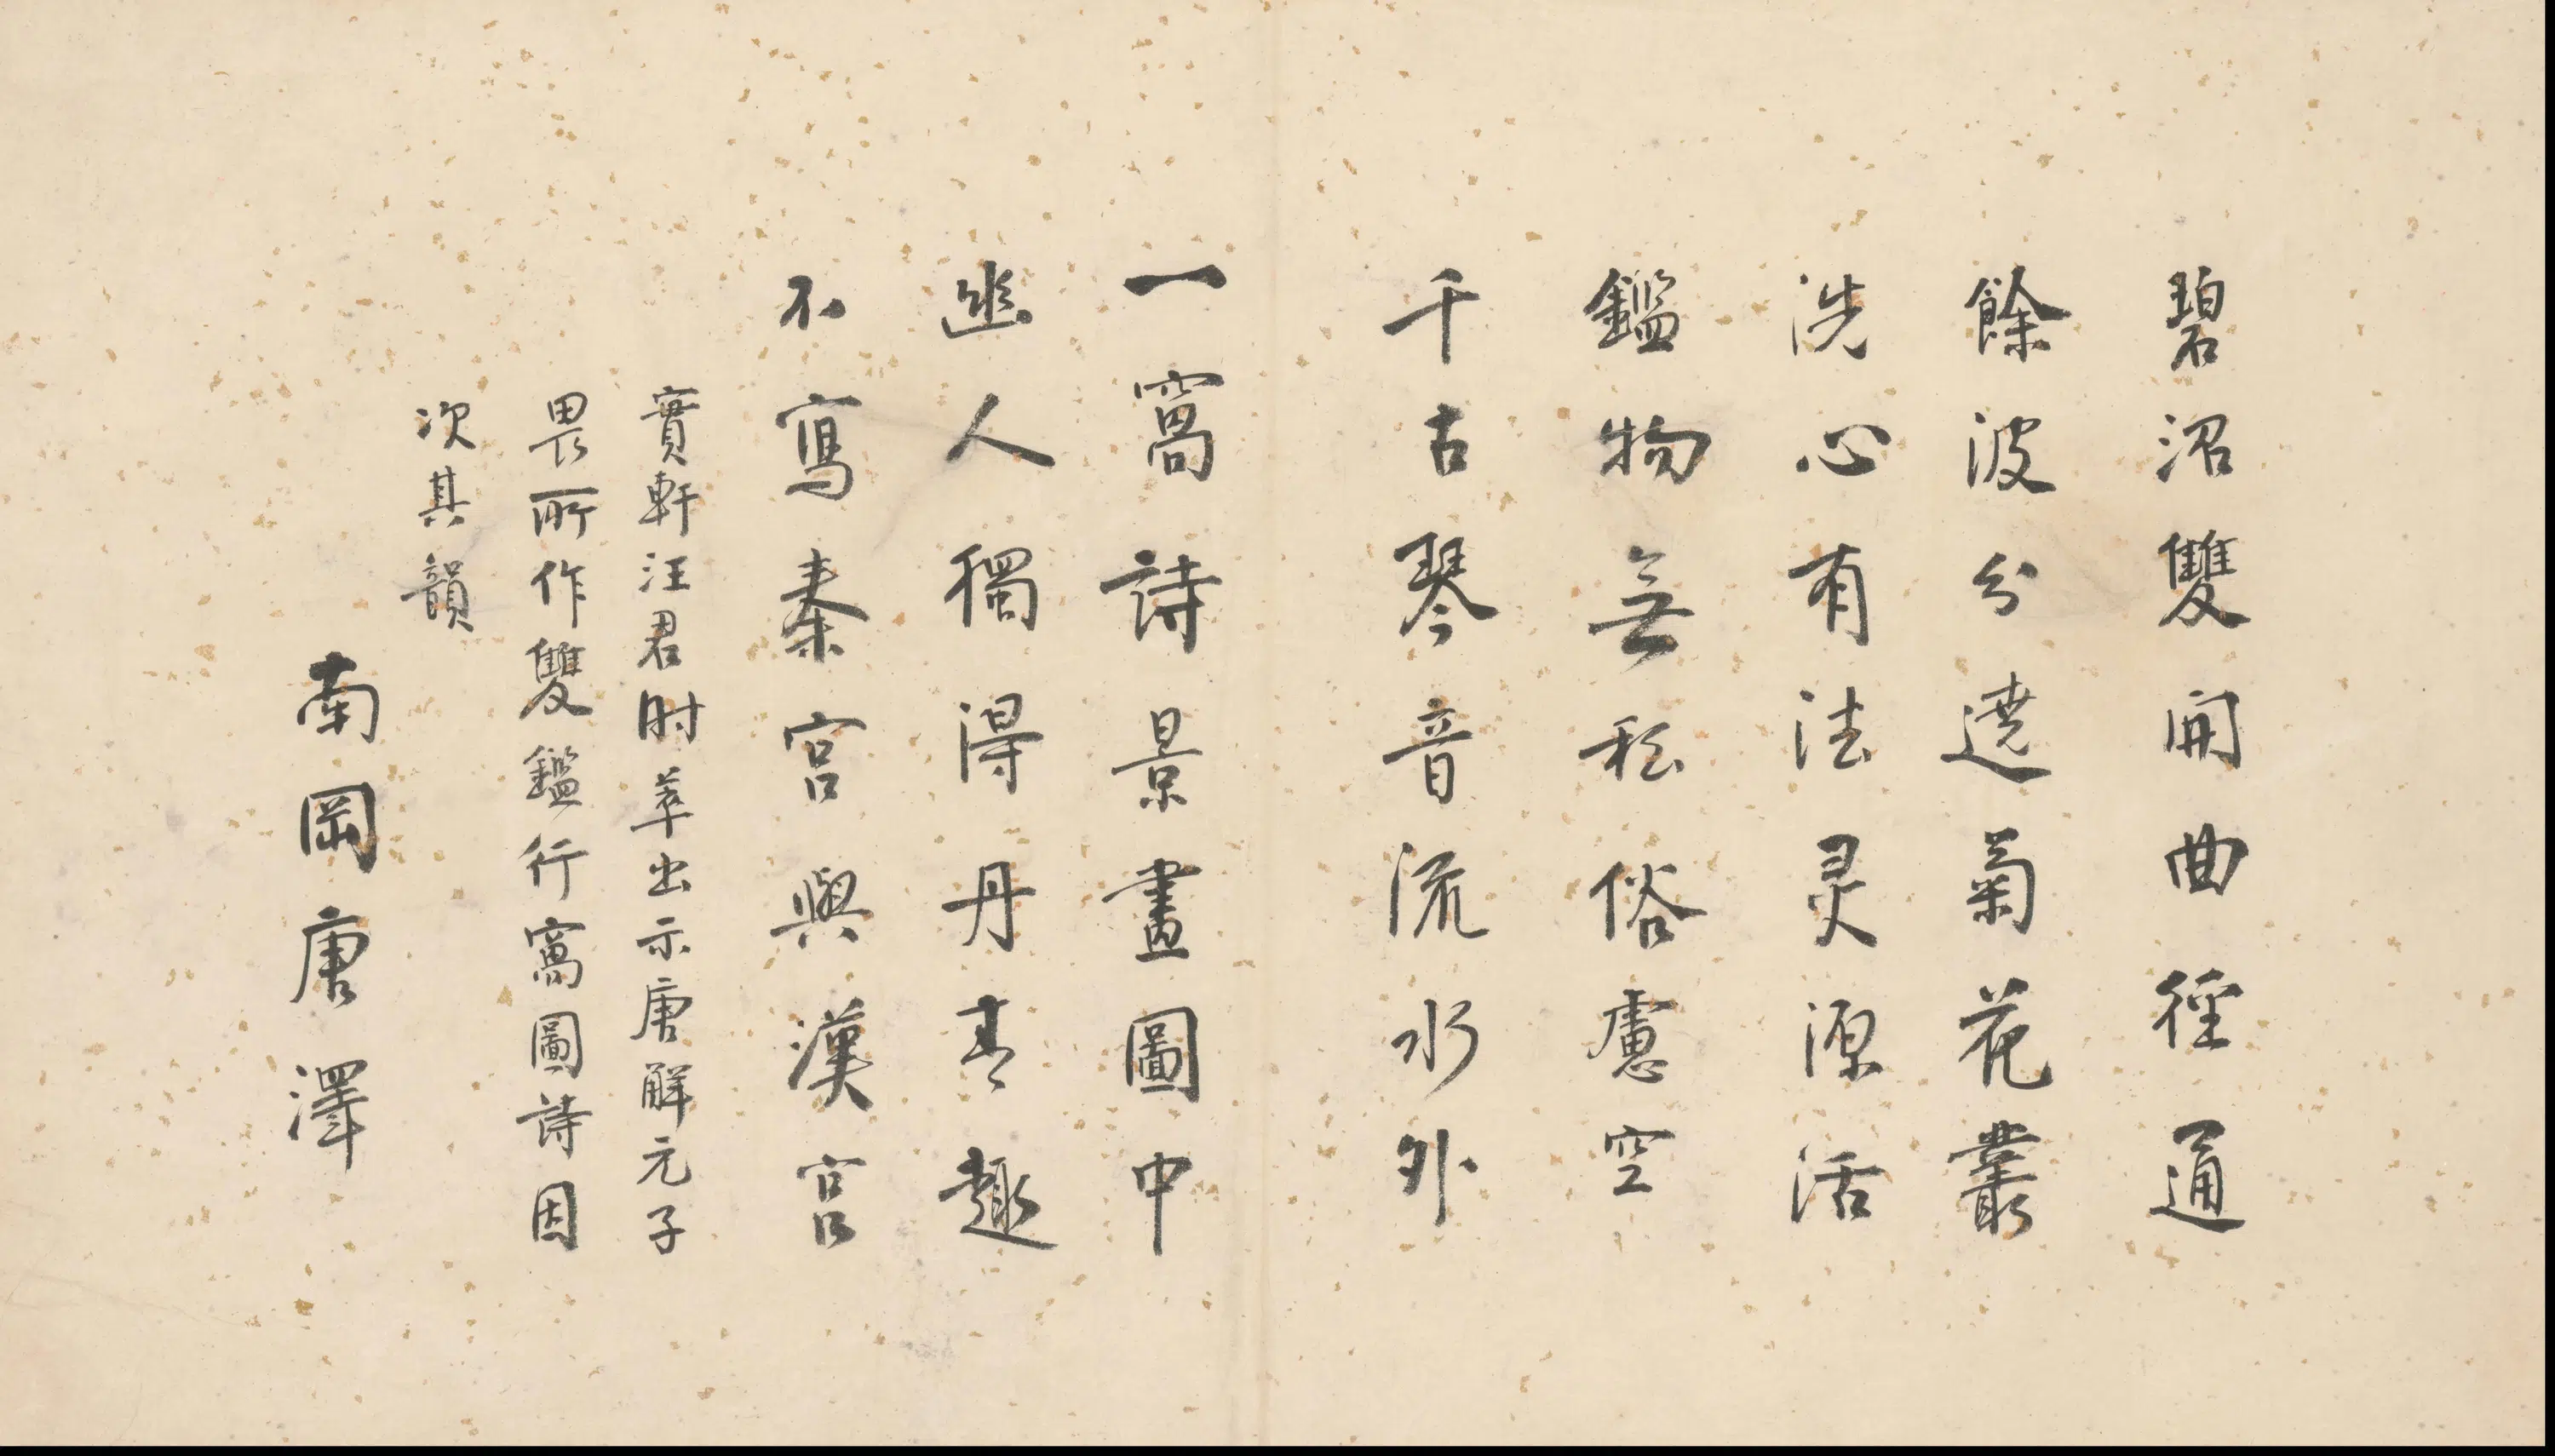 碧沼雙開曲徑通
餘波分遶菊花叢
洗心有法灵源活
鑑物無私俗慮空
千古琴音流水外
一窩詩景畫圖中
幽人獨得丹青趣
不寫秦宮與漢宮
實軒汪君時萃出示唐解元子
畏所作雙鑑行窩圖詩因
次其韻
南岡唐澤